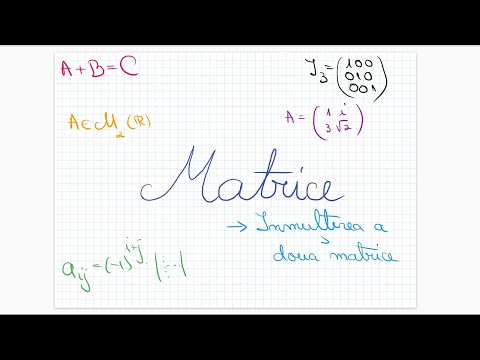 A + B = C
J₃ = (1 0 0
0 1 0
0 0 1)
A ∈ M₂(ℝ)
A = (1 i
3 √2)
Matrice
→ Inmulțirea a
doua matrice
a_ij = (-1)^{i+j} · |⋮⋯|